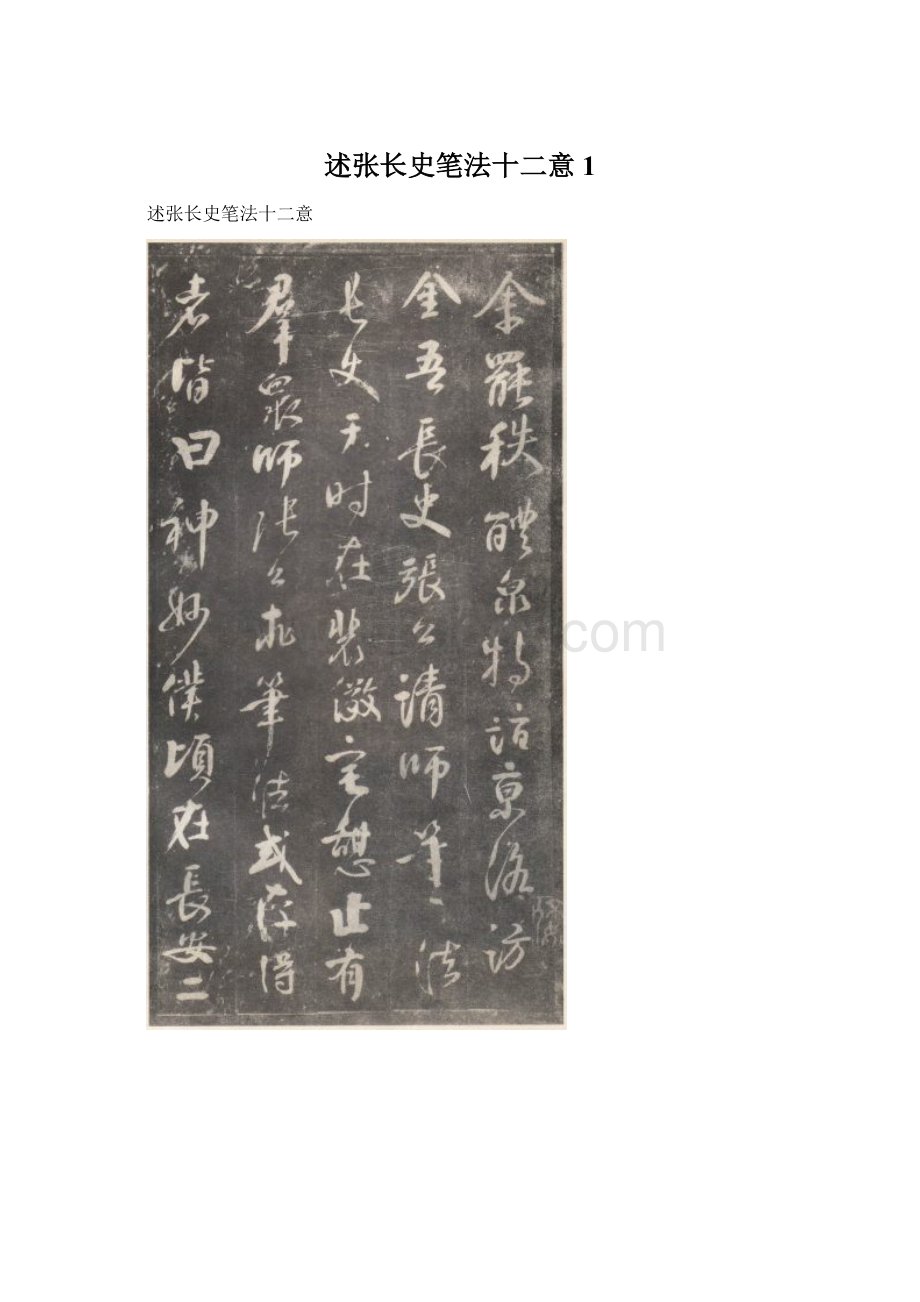 述张长史笔法十二意 1
述张长史笔法十二意
余罷秩醴泉特詣京洛訪
金吾長史張公請師筆法
長史于时在裴儆宅憩止有
羣眾師張公求筆法或存得
者皆曰神妙僕頃在長安二
.com